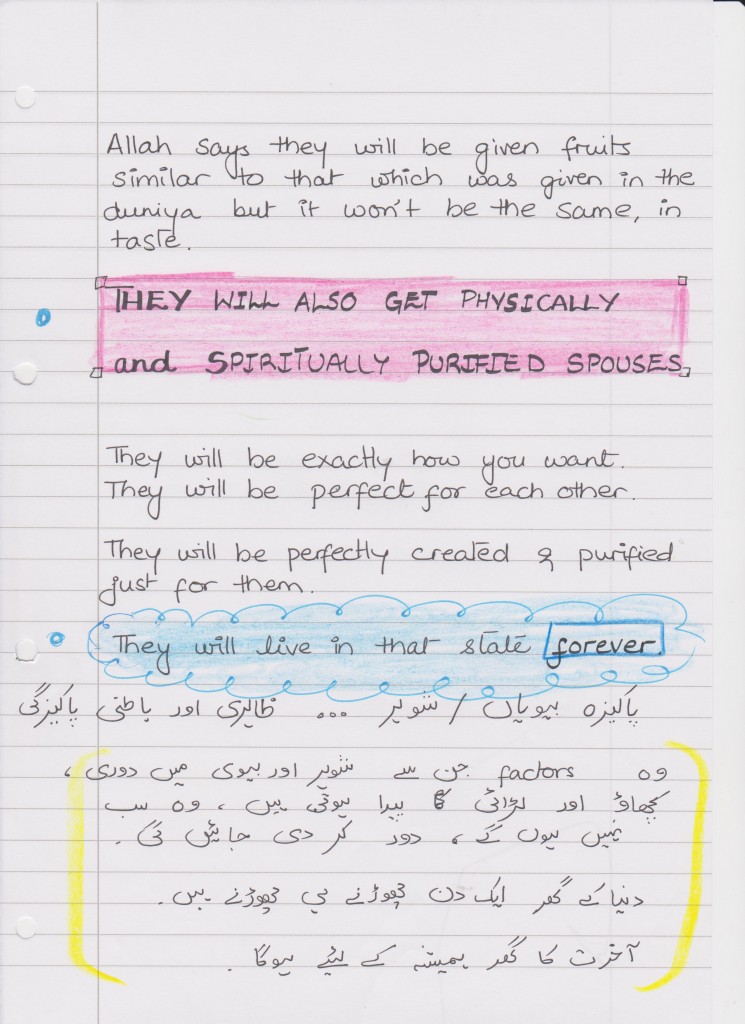 Allah says they will be given fruits
similar to that which was given in the
duniya but it won't be the same, in
taste.
THEY WILL ALSO GET PHYSICALLY
and SPIRITUALLY PURIFIED SPOUSES
They will be exactly how you want.
They will be perfect for each other.
They will be perfectly created & purified
just for them.
They will live in that state forever.
پاکیزہ بیویاں / شوہر ... ظاہری اور باطنی پاکیزگی
وہ factors جن سے شوہر اور بیوی میں دوری ،
کھچاؤ اور لڑائی پیدا ہوتی ہیں ، وہ سب
نہیں ہوں گے ، دور کر دی جائیں گی ۔
دنیا کے گھر ایک دن چھوڑنے ہی چھوڑنے ہیں ۔
آخرت کا گھر ہمیشہ کے لیئے ہوگا ۔